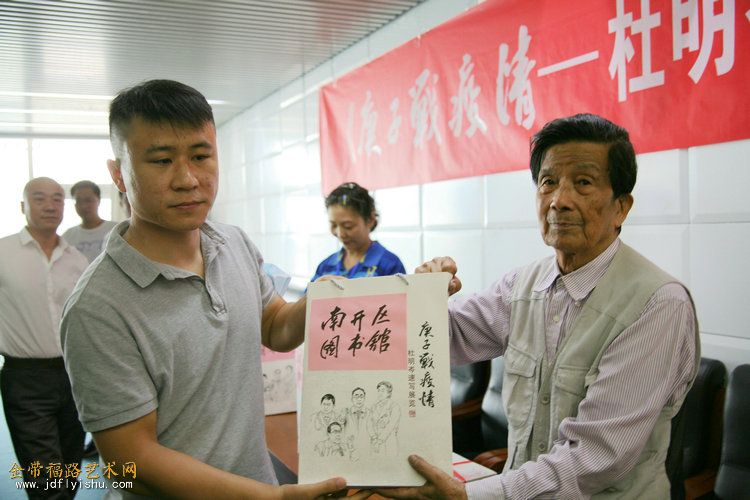 庚子戰疫情—杜明
南开区
图书馆
庚子戰疫情
杜明岑速写展览
金带福路艺术网
www.jdflyishu.com